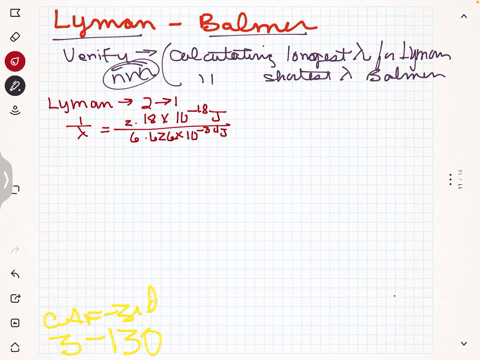 Lyman - Balmer
Verify → Calculating longest λ in Lyman
" shortest λ Balmer
Lyman → 2→1
1/λ = 2.18 x 10^-18 J / 6.626x10^-34 J
3-130
11 / 11